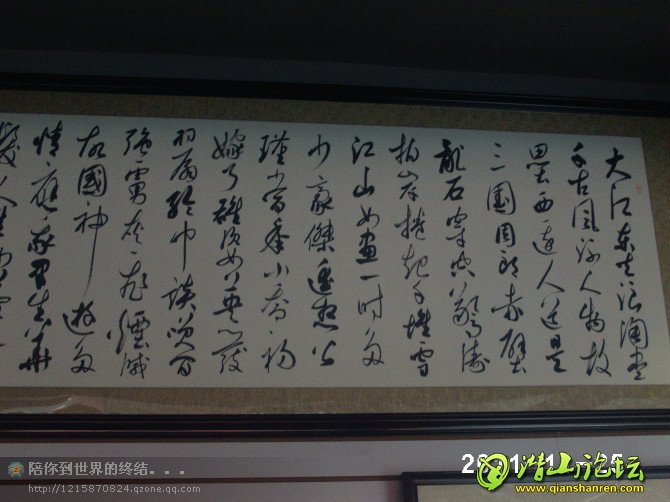 大江东去浪淘尽
千古风流人物故
垒西边人道是
三国周郎赤壁
乱石穿空惊涛
拍岸捲起千堆雪
江山如画一时多
少豪傑遥想公
瑾当年小乔初
嫁了雄姿英发
羽扇纶巾谈笑间
强虏灰飞煙滅
故國神遊多
情應笑我早生華
髮人生如
陪你到世界的终结...
http://1215870824.qzone.qq.com
潜山论坛
www.qianshanren.com